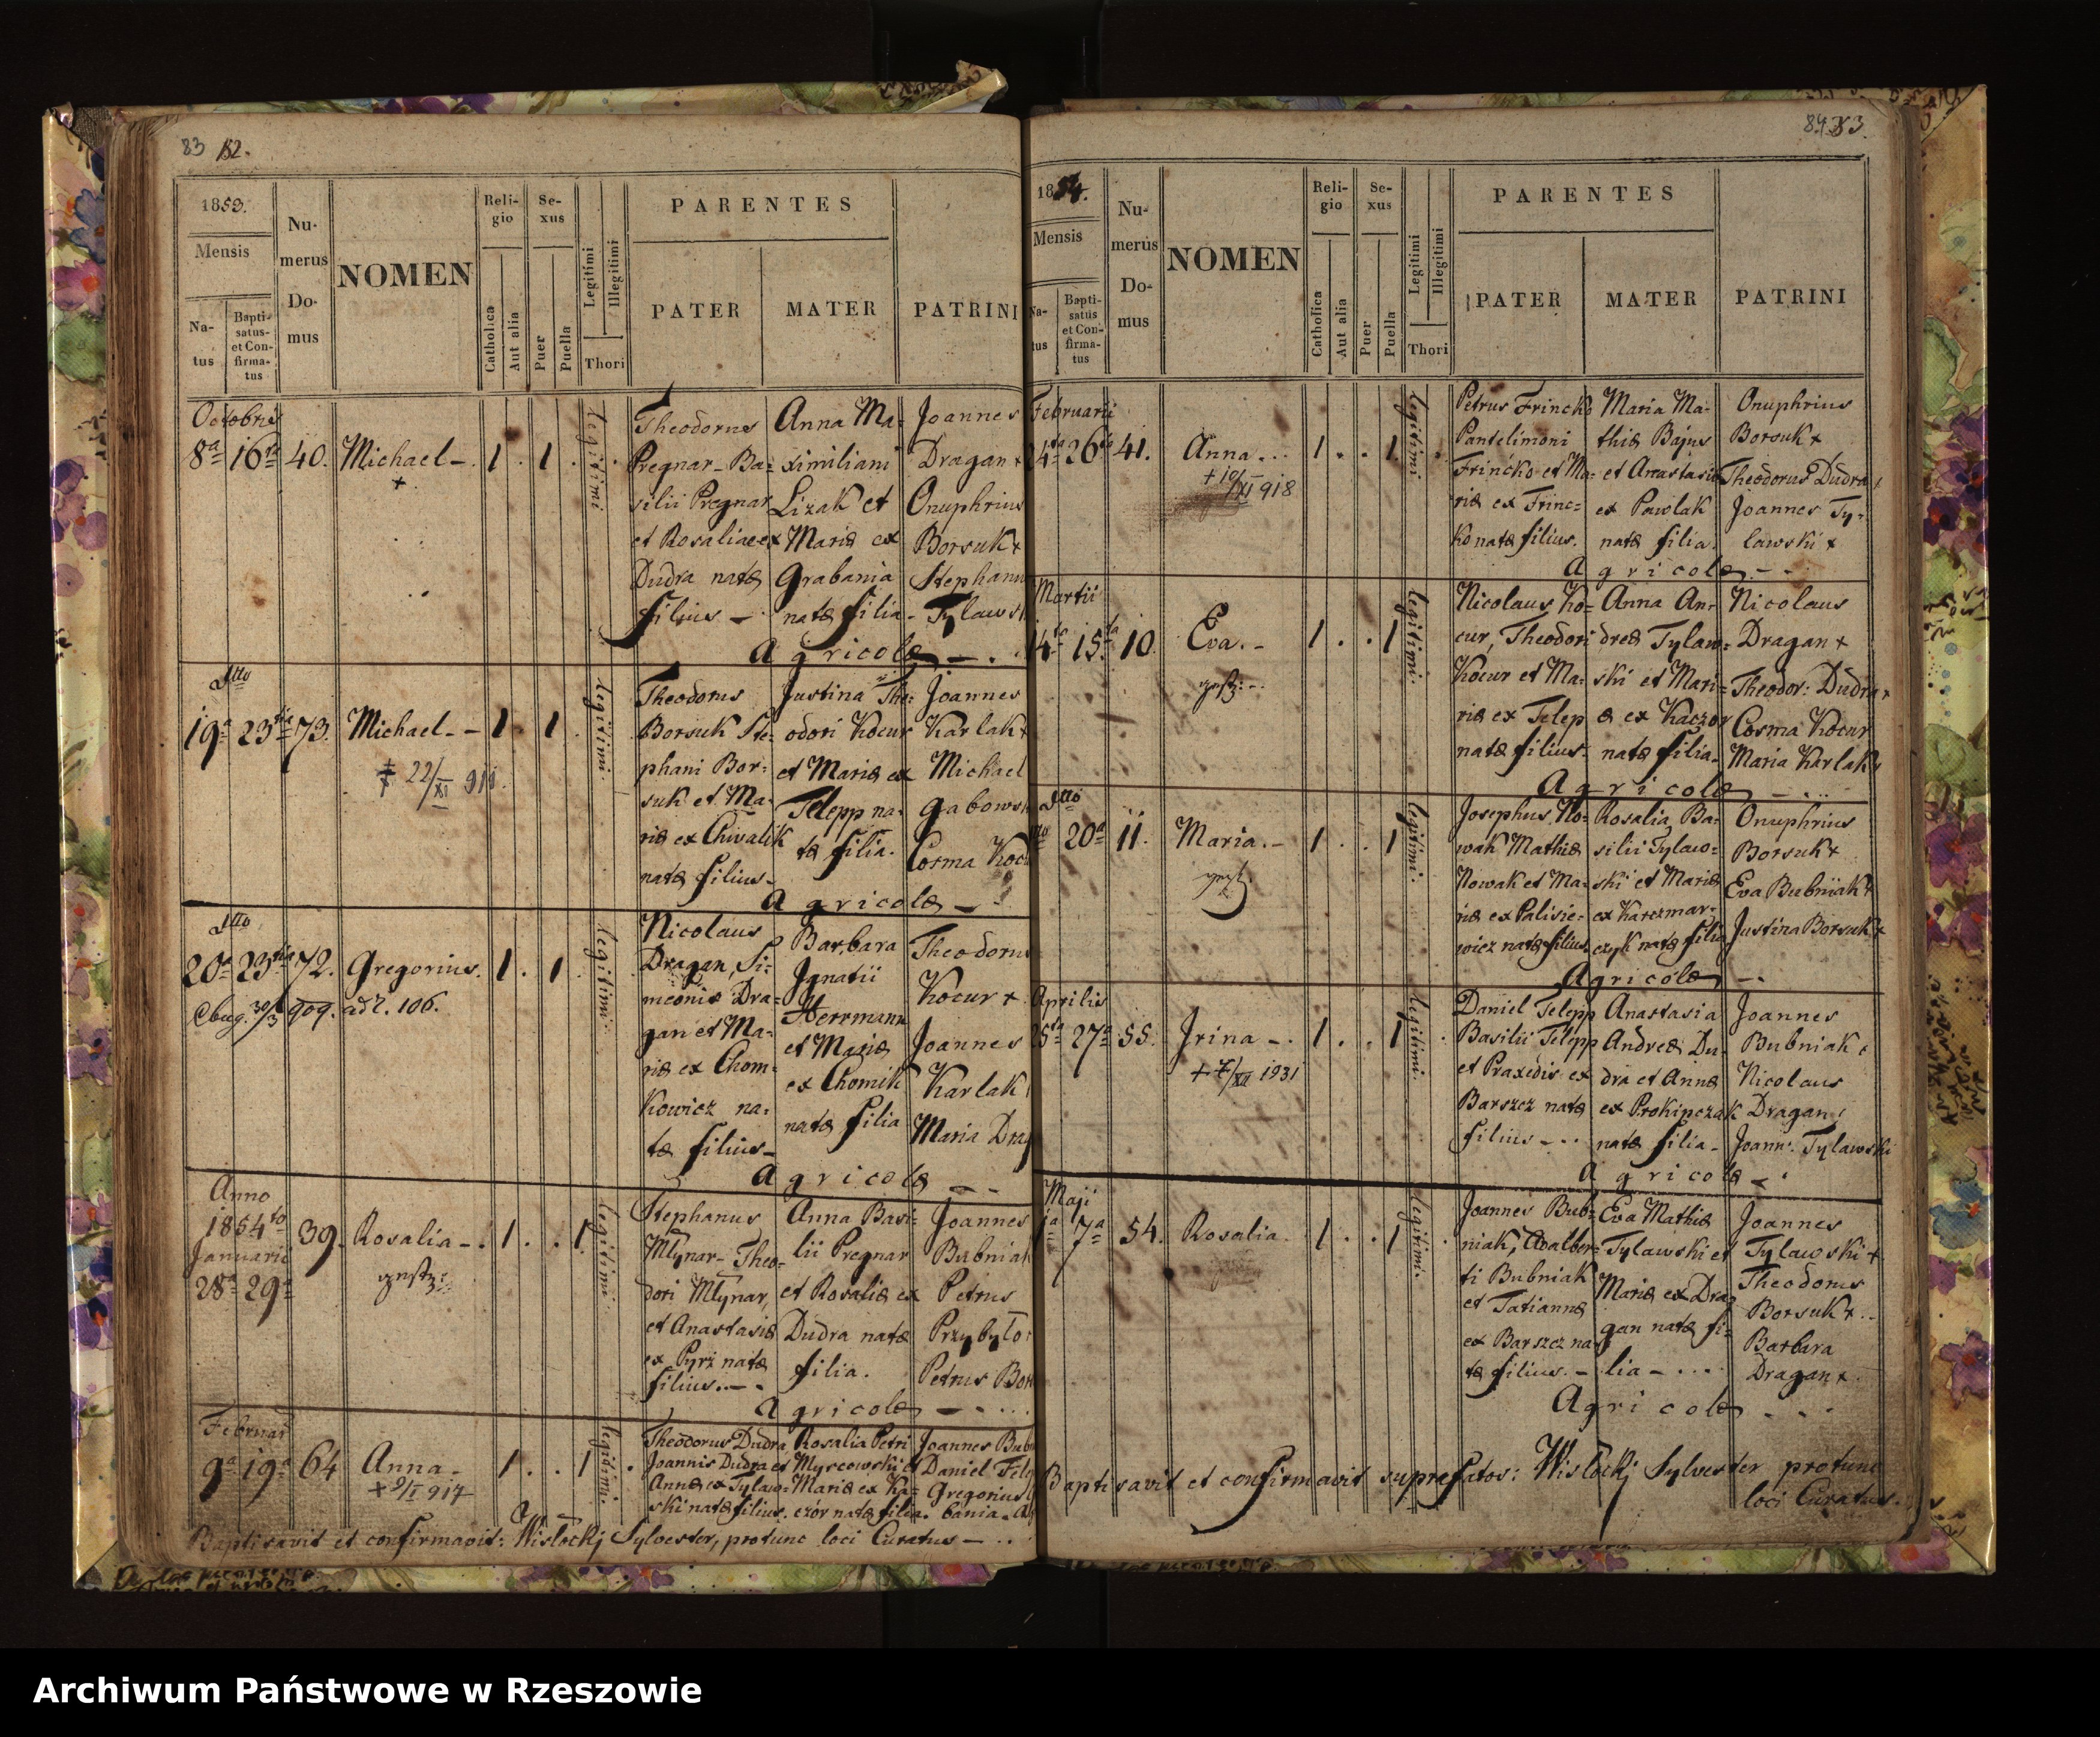 83 82.
1853.
Mensis
Na-
tus
Bapti-
satus
et Con-
firma-
tus
Nu-
merus
Do-
mus
NOMEN
Reli-
gio
Catholica
Aut alia
Se-
xus
Puer
Puella
Legitimi
Illegitimi
Thori
PARENTES
PATER
MATER
PATRINI
Octobris
8a 16ta 40. Michael
legitimi
Theodorus
Pregnar Ba-
silii Pregnar
et Rosaliae ex
Dudra natæ
filius
Anna Ma-
ximiliani
Lizak et
Mariæ ex
Grabania
natæ filia
Joannes
Dragan +
Onuphrius
Borsuk +
Stephanu
Tylawsk
Agricolæ
dtto
19a 23tia 73. Michael
+ 22/XI 911.
legitimi
Theodorus
Borsuk Ste-
phani Bor-
suk et Ma-
riæ ex Chwalik
natæ filius
Justina The-
odori Kocur
et Mariæ ex
Telepp na-
tæ filia.
Joannes
Karlak +
Michael
Gabows
Cosma Koc
Agricolæ
dtto
20a 23tia 72. Gregorius.
30/3 909. adr. 106.
legitimi
Nicolaus
Dragan, Si-
meonis Dra-
gan et Ma-
riæ ex Chom-
kowicz na-
tæ filius
Barbara
Ignatii
Herrmann
et Mariæ
ex Chomik
natæ filia
Theodorus
Kocur +
Joannes
Karlak
Maria Drag
Agricolæ
Anno
1854to
Januarii
28a 29a 39. Rosalia
legitimi
Stephanus
Młynar Theo-
dori Młynar,
et Anastasiæ
ex Pyrz natæ
filius.
Anna Basi-
lii Pregnar
et Rosaliæ ex
Dudra natæ
filia.
Joannes
Bubniak
Petrus
Przybyło
Petrus Bor
Agricolæ
Februar
9a 19a 64 Anna
+ 9/I 917
legitimi
Theodorus Dudra
Joannis Dudra et
Annæ ex Tylaw-
ski natæ filius.
Rosalia Petri
Myscowski et
Mariæ ex Ka-
czór natæ filia.
Joannes Bub
Daniel Tele
Gregorius
bania
Baptisavit et confirmavit: Wisłockj Sylvester, protunc loci Curatus
84 83.
1854.
Mensis
Na-
tus
Bapti-
satus
et Con-
firma-
tus
Nu-
merus
Do-
mus
NOMEN
Reli-
gio
Catholica
Aut alia
Se-
xus
Puer
Puella
Legitimi
Illegitimi
Thori
PARENTES
PATER
MATER
PATRINI
Februarii
24ta 26ta 41. Anna
+ 10/XI 918
legitimi
Petrus Frincko
Pantelimoni
Frincko et Ma-
riæ ex Frinc-
ko natæ filius.
Maria Ma-
thiæ Bajus
et Anastasiæ
ex Pawlak
natæ filia.
Onuphrius
Borsuk +
Theodorus Dudra
Joannes Ty-
lawski +
Agricolæ
Martii
14ta 15ta 10. Eva.
legitimi
Nicolaus Ko-
cur, Theodori
Kocur et Ma-
riæ ex Telep
natæ filius.
Anna An-
dreæ Tylaw-
ski et Mari-
æ ex Kaczor
natæ filia.
Nicolaus
Dragan +
Theodor: Dudra +
Cosma Kocur
Maria Karlak +
Agricolæ
dtto
20a 11. Maria.
legitimi
Josephus No-
wak Mathiæ
Nowak et Ma-
riæ ex Palisie-
wicz natæ filius.
Rosalia Ba-
silii Tylaw-
ski et Mariæ
ex Karczmar-
czyk natæ filia
Onuphrius
Borsuk +
Eva Bubniak +
Justina Borsuk +
Agricolæ
Aprilis
25ta 27a 55. Irina
+ 7/XII 1931
legitimi
Daniel Telepp
Basilii Telepp
et Praxedis ex
Barszcz natæ
filius
Anastasia
Andreæ Du-
dra et Annæ
ex Prokipczak
natæ filia
Joannes
Bubniak
Nicolaus
Dragan
Joann: Tylawski
Agricolæ
Maji
1a 7a 54. Rosalia.
legitimi.
Joannes Bub-
niak, Adalber-
ti Bubniak
et Tatiannæ
ex Barszcz na-
tæ filius.
Eva Mathiæ
Tylawski et
Mariæ ex Dra-
gan natæ fi-
lia
Joannes
Tylawski +
Theodorus
Borsuk +
Barbara
Dragan +
Agricolæ
Baptisavit et confirmavit suprefatos: Wisłockj Sylvester protunc
loci Curatus.
Archiwum Państwowe w Rzeszowie